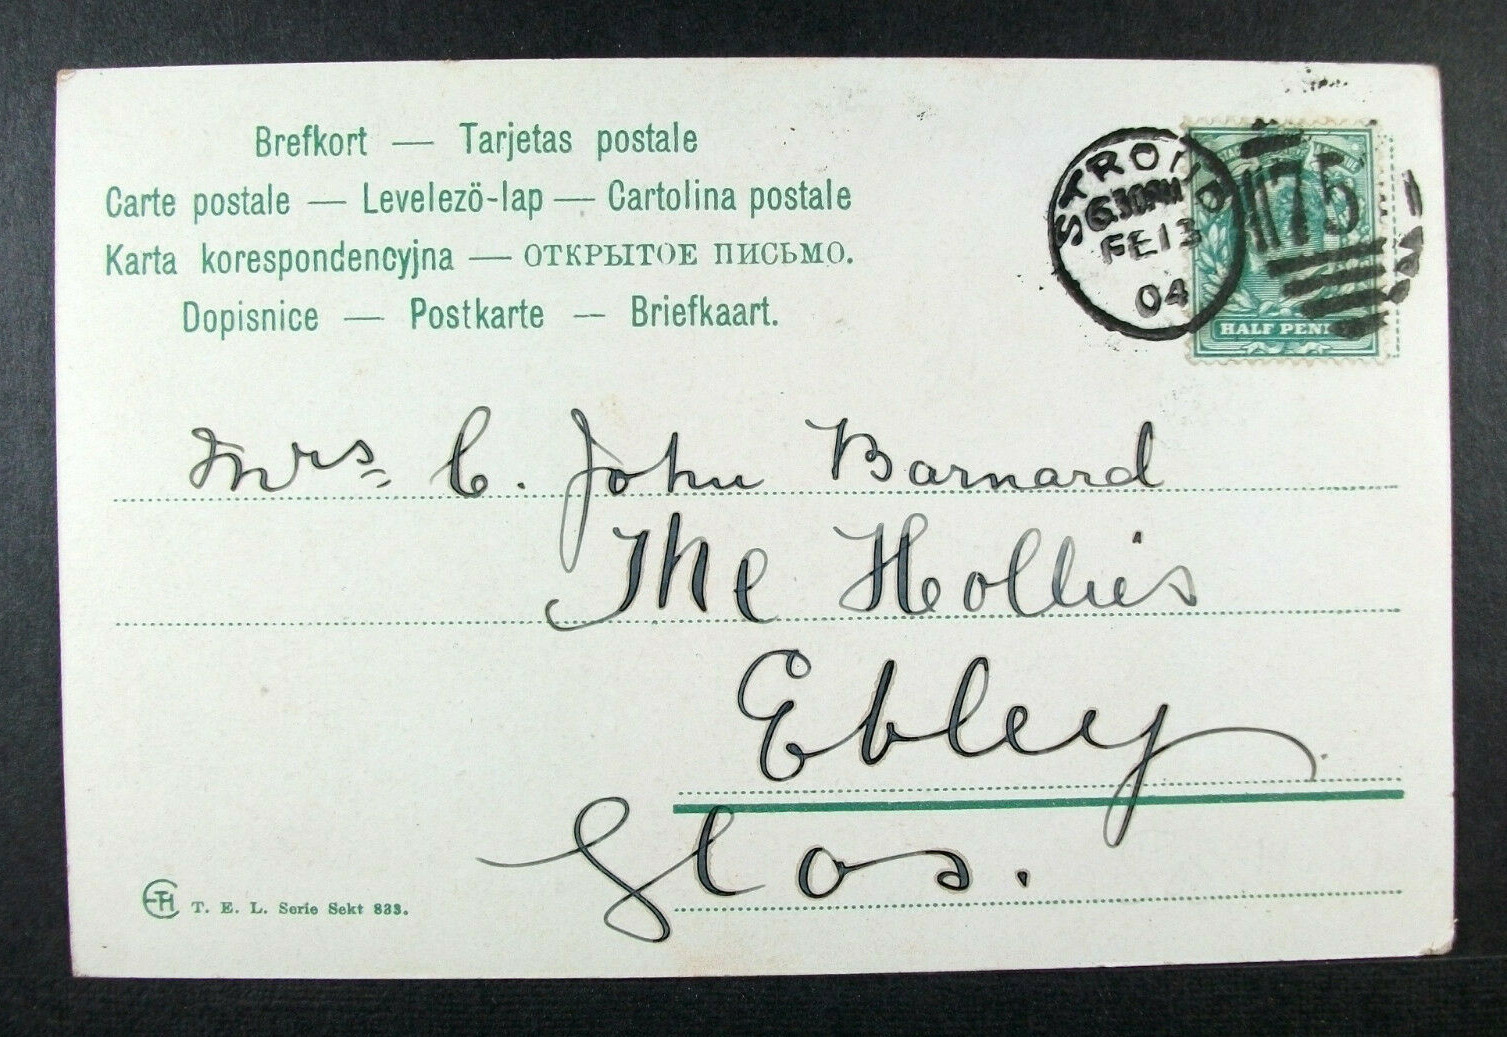 Brefkort — Tarjetas postale
Carte postale — Levelezö-lap — Cartolina postale
Karta korespondencyjna — ОТКРЫТОЕ ПИСЬМО.
Dopisnice — Postkarte — Briefkaart.
STROUD
6.30PM
FE 13
04
75
HALF PEN
Mrs C. John Barnard
The Hollies
Ebley
Glos.
T. E. L. Serie Sekt 833.